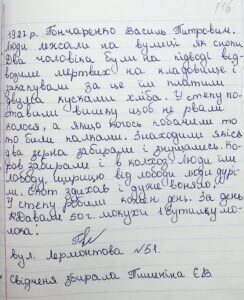 146
1922 р. Гончаренко Василь Питрович.
Люди лежали на вулиці як снопи
Два чоловіка були на підводі від-
возили мертвих на кладовище і
закапували за це їм платили
двума кусками хліба. У степу по-
ставили вишки щоб не рвали
колося, а якщо когось побачили то
то били палками. Знаходили якісь
два зерна забирали і знущались. Ко-
ров забирали і в колхоз. Люди їли
лободу, щирицю від лободи люди дурі-
ли. Скот здихав і дуже воняло.
У степу робили кожен день. За день
давали 50 г. мокухи і бутилку мо-
лока!
вул. Лермонтова №51.
Свідчення збирала Пшеніна Є.В.